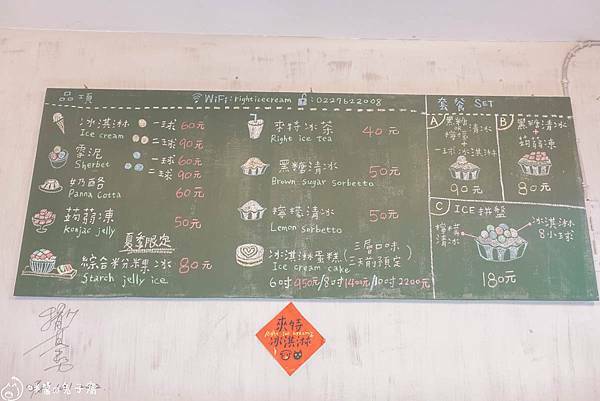 品項
WiFi: righticecream
0227622008
冰淇淋 一球 60元
Ice cream 二球 90元
雪泥 一球 60元
Sherbet 二球 90元
奶酪
Panna Cotta 60元
蒟蒻凍
Konjac jelly 50元
夏季限定
綜合粉粿冰 80元
Starch jelly ice
來特冰茶 40元
Right ice Tea
黑糖清冰 50元
Brown sugar sorbetto
檸檬清冰 50元
Lemon sorbetto
冰淇淋蛋糕 (三層口味 三天前預定)
Ice cream cake
6吋950元/8吋1400元/10吋2200元
套餐 SET
A 黑糖
檸檬 清冰
+
一球冰淇淋
90元
B 黑糖清冰
+
蒟蒻凍
80元
C ICE拼盤
檸檬清冰
冰淇淋
8小球
180元
來特
Right ice cream
冰淇淋